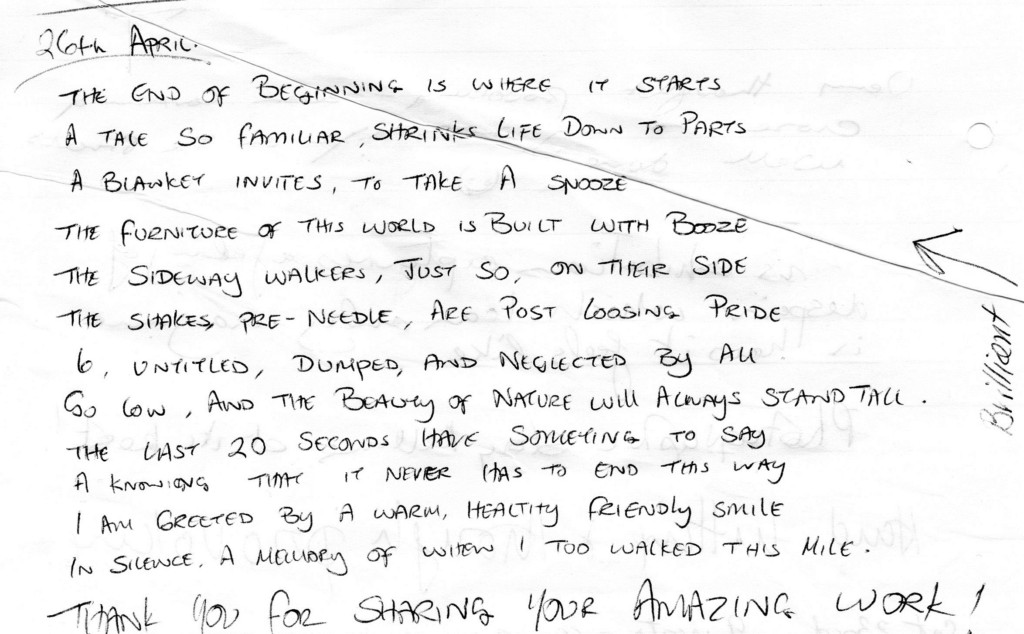 26th APRIL.
THE END OF BEGINNING IS WHERE IT STARTS
A TALE SO FAMILIAR, SHRINKS LIFE DOWN TO PARTS
A BLANKET INVITES, TO TAKE A SNOOZE
THE FURNITURE OF THIS WORLD IS BUILT WITH BOOZE
THE SIDEWAY WALKERS, JUST SO, ON THEIR SIDE
THE SHAKES, PRE-NEEDLE, ARE POST LOOSING PRIDE
6, UNTITLED, DUMPED, AND NEGLECTED BY ALL
GO LOW, AND THE BEAUTY OF NATURE WILL ALWAYS STAND TALL.
THE LAST 20 SECONDS HAVE SOMETHING TO SAY
A KNOWING THAT IT NEVER HAS TO END THIS WAY
I AM GREETED BY A WARM, HEALTHY FRIENDLY SMILE
IN SILENCE, A MEMORY OF WHEN I TOO WALKED THIS MILE.
THANK YOU FOR SHARING YOUR AMAZING WORK!
Brilliant